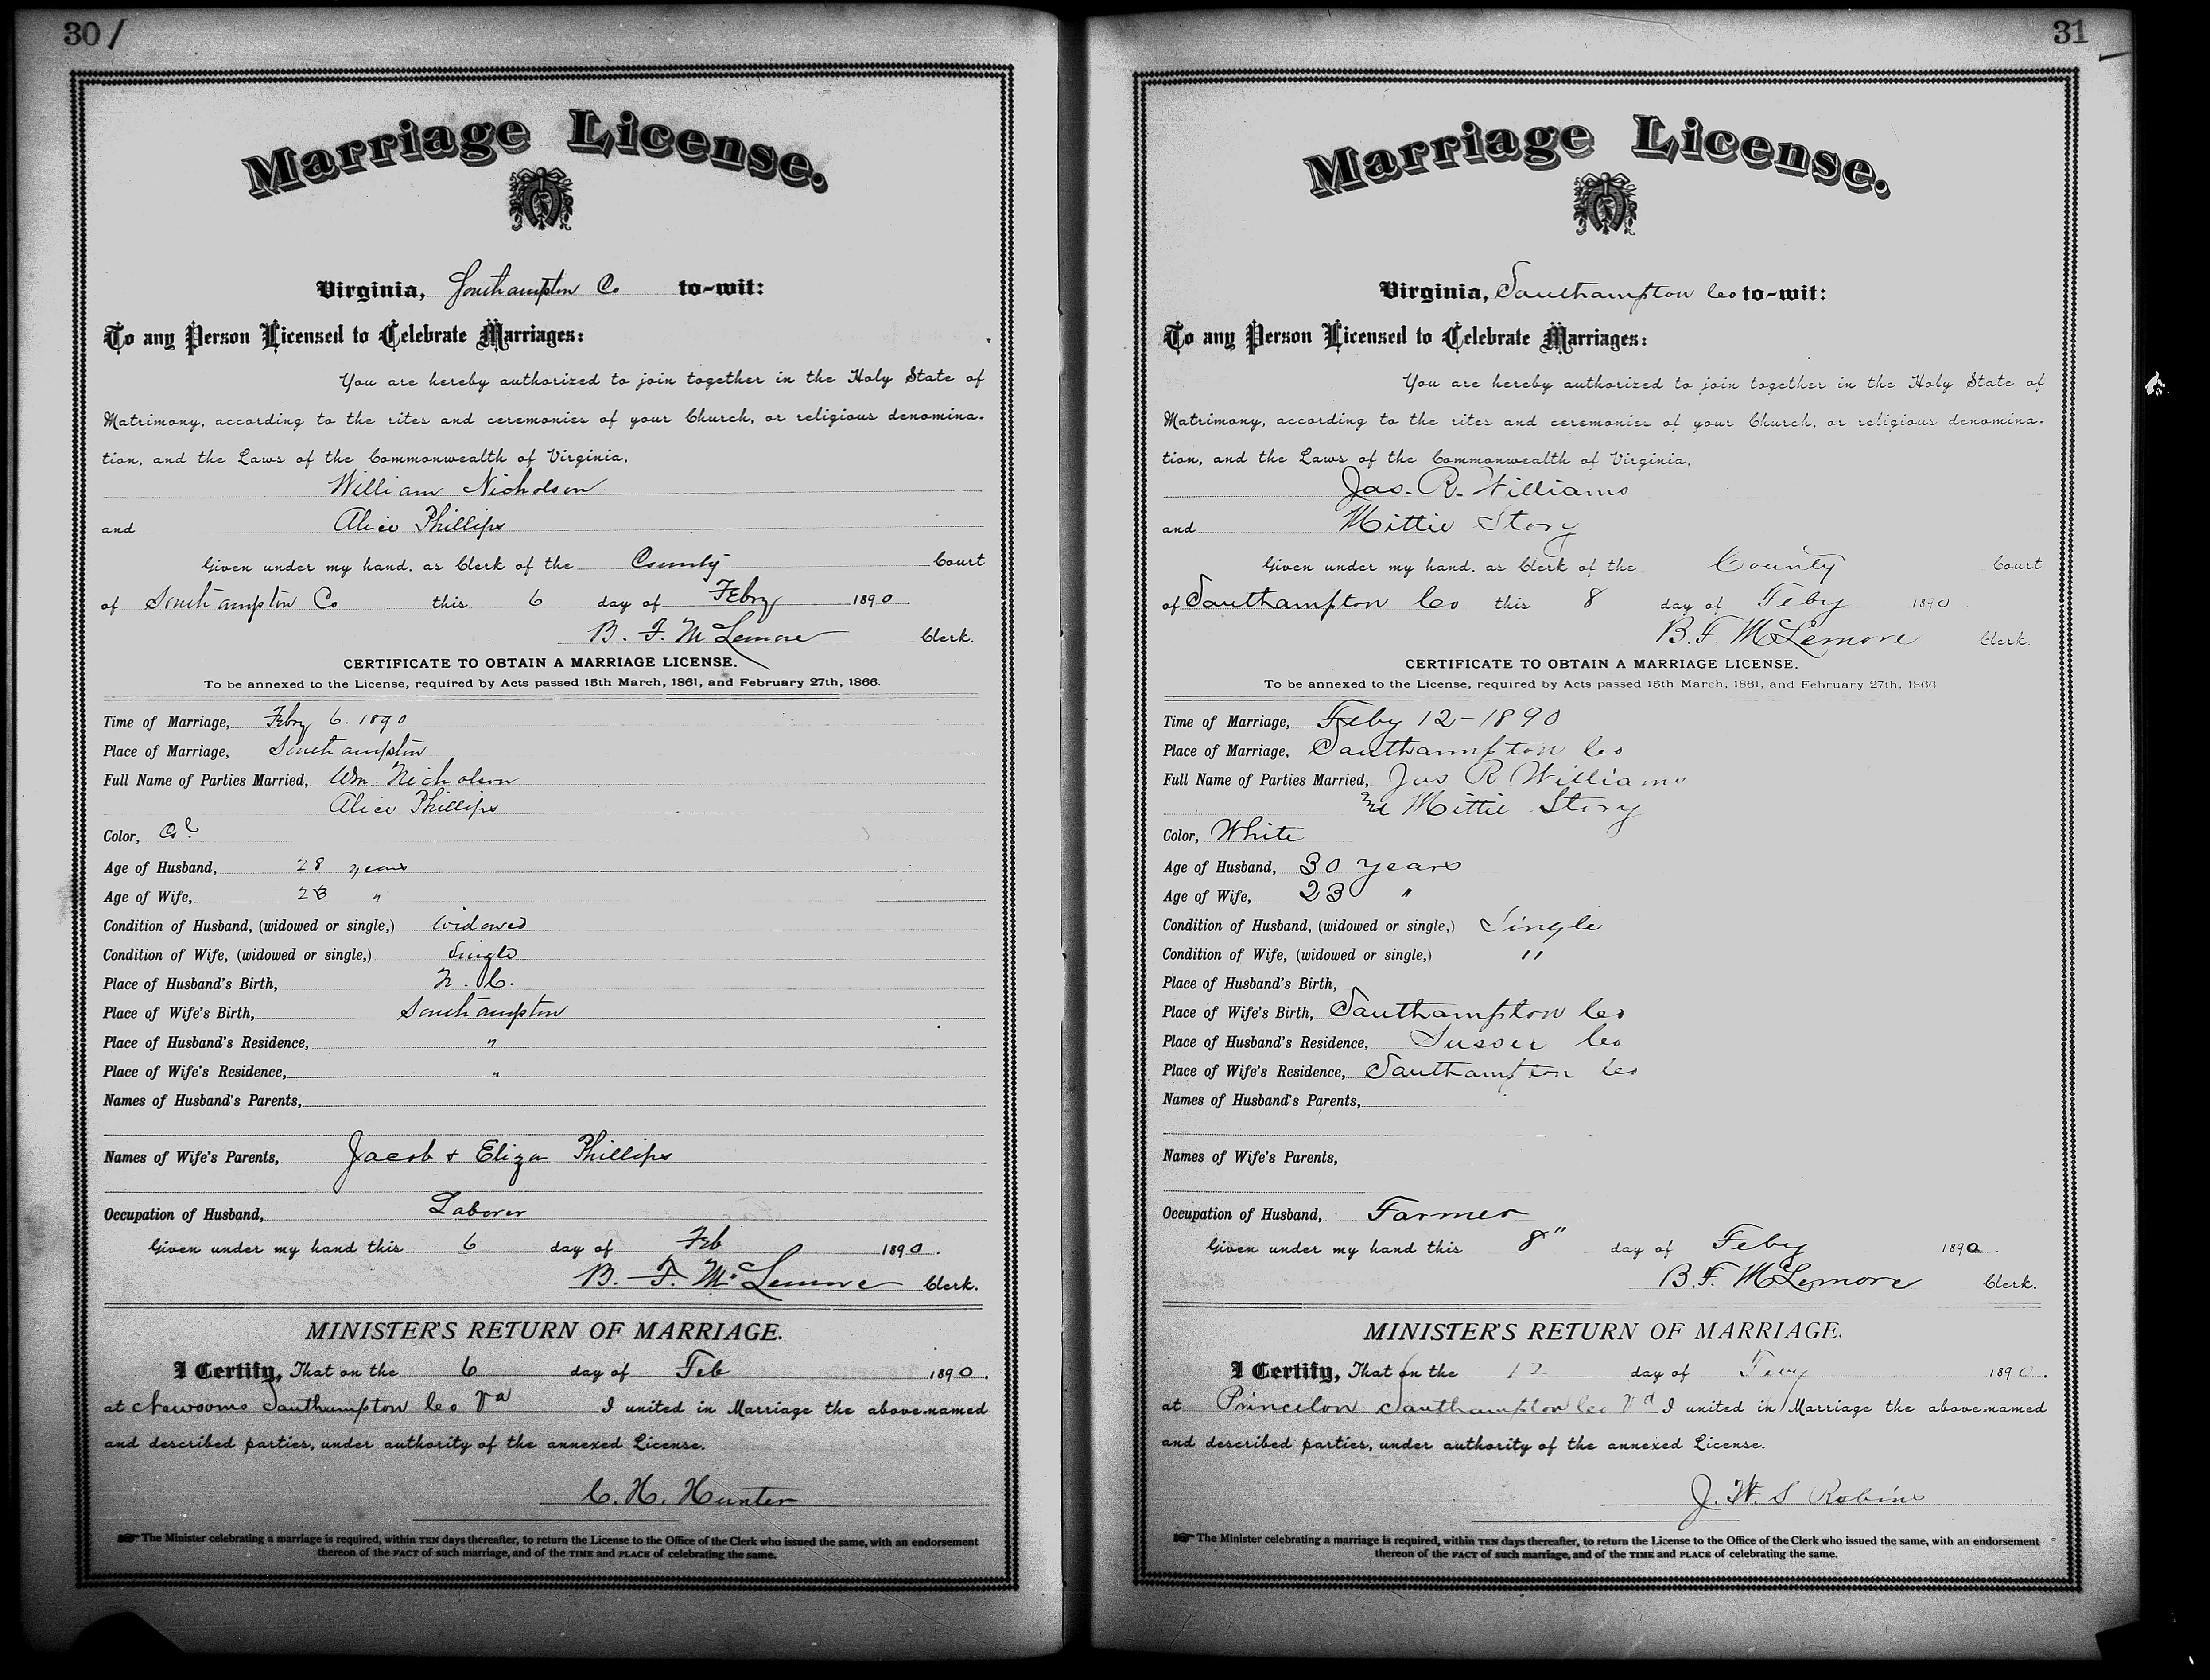 30/
Marriage License.
Virginia, Southampton Co to-wit:
To any Person Licensed to Celebrate Marriages:
You are hereby authorized to join together in the Holy State of
Matrimony, according to the rites and ceremonies of your Church, or religious denomina-
tion, and the Laws of the Commonwealth of Virginia,
William Nicholson
and Alice Phillips
Given under my hand, as Clerk of the County Court
of Southampton Co this 6 day of Febry 1890.
B. F. McLemore Clerk.
CERTIFICATE TO OBTAIN A MARRIAGE LICENSE.
To be annexed to the License, required by Acts passed 15th March, 1861, and February 27th, 1866.
Time of Marriage, Febry 6. 1890
Place of Marriage, Southampton
Full Name of Parties Married, Wm. Nicholson
Alice Phillips
Color, Col
Age of Husband, 28 years
Age of Wife, 23 "
Condition of Husband, (widowed or single,) Widowed
Condition of Wife, (widowed or single,) Single
Place of Husband's Birth, N. C.
Place of Wife's Birth, Southampton
Place of Husband's Residence, "
Place of Wife's Residence, "
Names of Husband's Parents,
Names of Wife's Parents, Jacob + Eliza Phillips
Occupation of Husband, Laborer
Given under my hand this 6 day of Feb 1890.
B. F. McLemore Clerk.
MINISTER'S RETURN OF MARRIAGE.
I Certify, That on the 6 day of Feb 1890.
at Newsoms Southampton Co Va I united in Marriage the above-named
and described parties, under authority of the annexed License.
C. H. Hunter
The Minister celebrating a marriage is required, within TEN days thereafter, to return the License to the Office of the Clerk who issued the same, with an endorsement
thereon of the FACT of such marriage, and of the TIME and PLACE of celebrating the same.
31
Marriage License.
Virginia, Southampton Co to-wit:
To any Person Licensed to Celebrate Marriages:
You are hereby authorized to join together in the Holy State of
Matrimony, according to the rites and ceremonies of your Church, or religious denomina-
tion, and the Laws of the Commonwealth of Virginia,
Jas. R. Williams
and Mittie Story
Given under my hand, as Clerk of the County Court
of Southampton Co this 8 day of Feby 1890.
B. F. McLemore Clerk.
CERTIFICATE TO OBTAIN A MARRIAGE LICENSE.
To be annexed to the License, required by Acts passed 15th March, 1861, and February 27th, 1866.
Time of Marriage, Feby 12-1890
Place of Marriage, Southampton Co
Full Name of Parties Married, Jas R Williams
and Mittie Story
Color, White
Age of Husband, 30 years
Age of Wife, 23 "
Condition of Husband, (widowed or single,) Single
Condition of Wife, (widowed or single,) "
Place of Husband's Birth,
Place of Wife's Birth, Southampton Co
Place of Husband's Residence, Sussex Co
Place of Wife's Residence, Southampton Co
Names of Husband's Parents,
Names of Wife's Parents,
Occupation of Husband, Farmer
Given under my hand this 8" day of Feby 1890.
B. F. McLemore Clerk.
MINISTER'S RETURN OF MARRIAGE.
I Certify, That on the 12 day of Feby 1890.
at Princelon Southampton Co Va I united in Marriage the above-named
and described parties, under authority of the annexed License.
J. W. S Robins
The Minister celebrating a marriage is required, within TEN days thereafter, to return the License to the Office of the Clerk who issued the same, with an endorsement
thereon of the FACT of such marriage, and of the TIME and PLACE of celebrating the same.